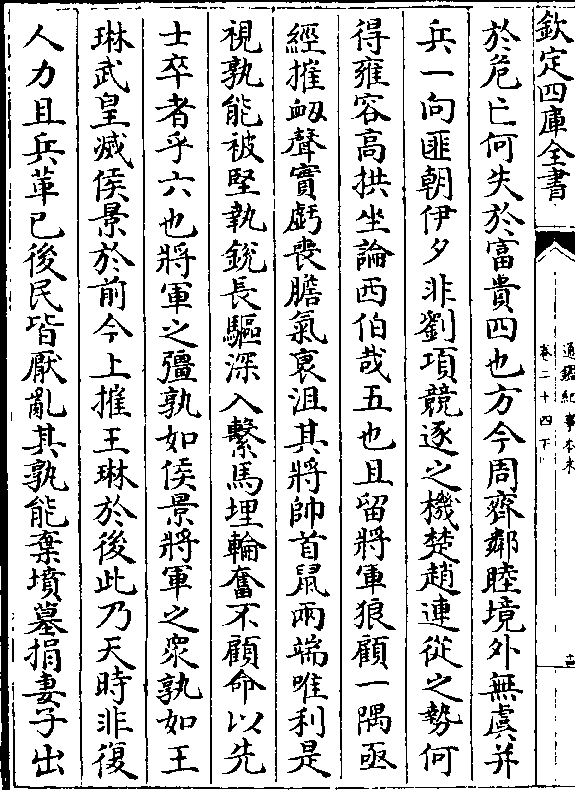 欽定四庫全書
通鑑紀事本末
卷二十四下
於危亡何失於富貴四也方今周齊鄰睦境外無虞并
兵一向匪朝伊夕非劉項競逐之機楚趙連從之勢何
得雍容高拱坐論西伯哉五也且留將軍狼顧一隅亟
經摧衂聲實虧喪膽氣衰沮其將帥首鼠兩端唯利是
視孰能被堅執銳長驅深入繫馬埋輪奮不顧命以先
士卒者乎六也將軍之彊孰如侯景將軍之衆孰如王
琳武皇滅侯景於前今上摧王琳於後此乃天時非復
人力且兵革已後民皆厭亂其孰能棄墳墓捐妻子出